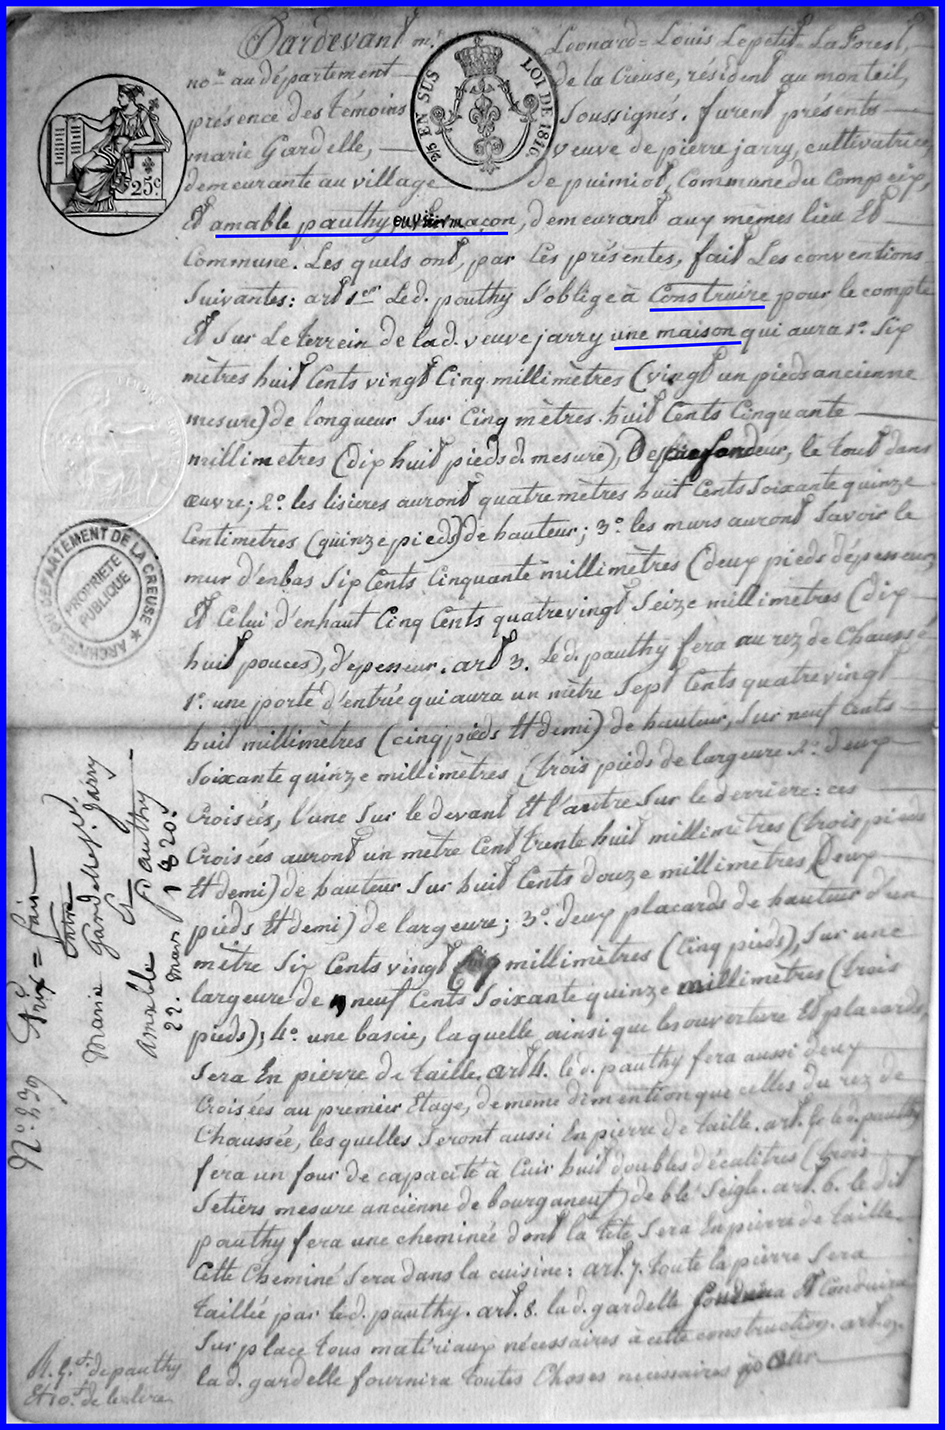 Pardevant m.^e Léonard=Louis Lepetit=LaForest,
no.^re au département de la Creuse, résident au monteil,
présence des témoins Soussignés. furent présents
marie Gardelle, veuve de pierre jarry, cultivatrice,
demeurante au village de puimiot, Commune du Compeix,
Et amable pauthy ouvrier maçon, demeurant aux mêmes lieu Et
Commune. Les quels ont, par Les présentes, fait Les conventions
Suivantes: art 1.^er Led. pauthy S'oblige à Construire pour le compte
Et Sur Le terrein de lad. veuve jarry une maison qui aura 1.° Six
mètres huit Cents vingt Cinq millimètres (vingt un pieds ancienne
mesure) de longueur Sur Cinq mètres huit Cents Cinquante
millimetres (dix huit pieds d. mesure), De profondeur, le tout dans
œuvre; 2.° les lisieres auront quatre mètres huit Cents Soixante quinze
Centimetres (quinze pieds) de hauteur; 3.° les murs auront Savoir le
mur d'enbas Six Cents Cinquante millimètres (deux pieds d'épesseur,
Et Celui d'enhaut Cinq Cents quatrevingt Seize millimètres (dix
huit pouces), d'épesseur. art 3. Le d. pauthy fera au rez de Chaussé
1.° une porte d'entrée qui aura un mètre Sept Cents quatrevingt
huit millimètres (cinq pieds Et demi) de hauteur, Sur neuf Cents
Soixante quinze millimètres (trois pieds de largeure 2.° deux
Croisées, l'une Sur le devant Et l'autre Sur le derriere: ces
Croisées auront un metre Cent trente huit millimètres (trois pieds
Et demi) de hauteur Sur huit Cents douze millimètres (deux
pieds Et demi) de largeure; 3.° deux placards de hauteur d'un
mètre Six Cents vingt Cinq millimètres (Cinq pieds), Sur une
largeure de neuf Cents Soixante quinze millimètres (trois
pieds); 4.° une basie, laquelle ainsi que les ouverture Et placards,
Sera En pierre de taille. art 4. le d. pauthy fera aussi deux
Croisées au premier Etage, de meme dimention que celles du rez de
Chaussée, les quelles Seront aussi En pierre de taille. art. 5. le d. pauthy
fera un four de capacité à Cuir huit doubles décalitres (trois
Setiers mesure ancienne de bourganeuf) de blé Seigle. art. 6. le dit
pauthy fera une cheminée dont la tête Sera En pierre de taille.
Cette Cheminé Sera dans la cuisine: art. 7. toute la pierre Sera
taillée par le d. pauthy. art. 8. la d. gardelle fournira Et Conduira
Sur place tous matériaux nécessaires à cette construction. art. 9.
la d. gardelle fournira toutes Choses necessaires pour
N.° 239
Prix = fait
Entre
Marie Gardelle v.^e Jarry
Et
Amable Pauthy
22. Mars 1820.
R. G.^t de pauthy
Et 10.^t de la
25^c
2/5 EN SUS
LOI DE 1816.
ARCHIVES DU DÉPARTEMENT DE LA CREUSE ★
PROPRIÉTÉ
PUBLIQUE